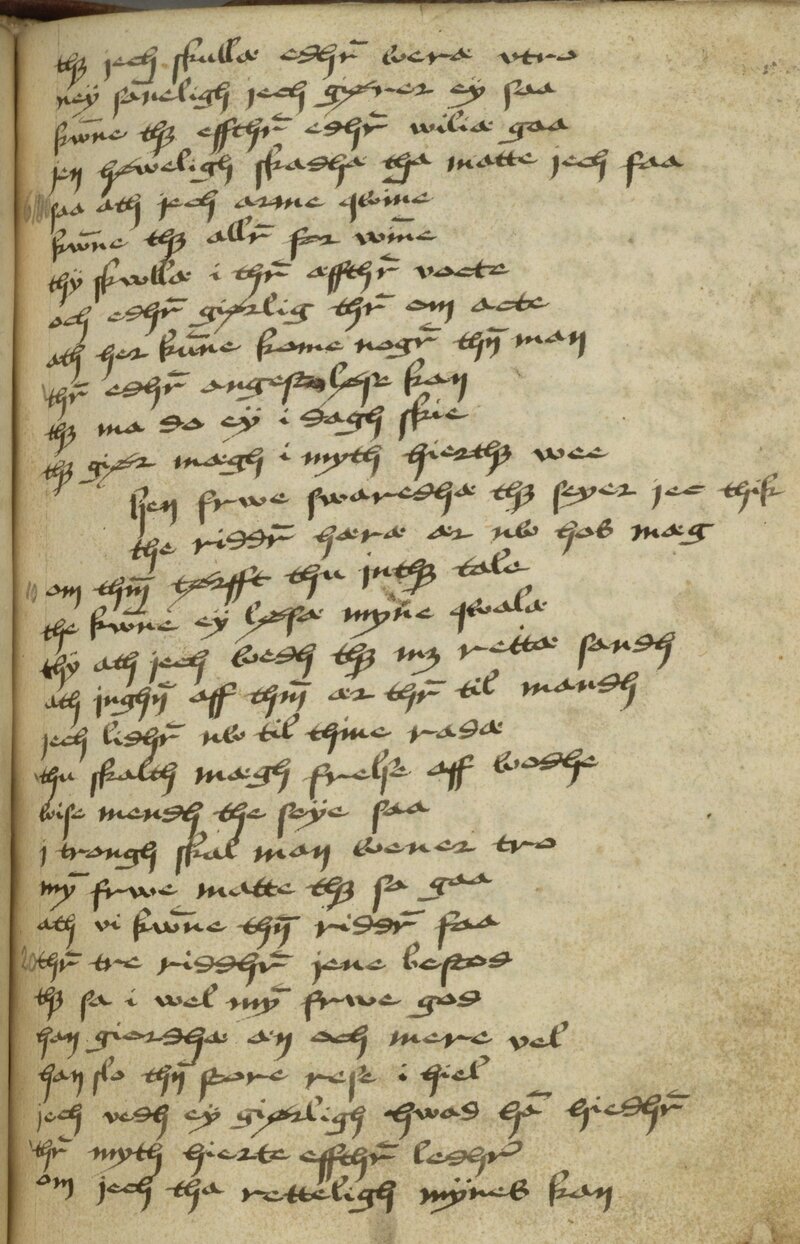 thꝫ jech skullæ edhr̄ weræ vtro
ney sān̄eligh jech giører ey saa
kwn̄e thꝫ effthr̄ edhr̄ wiliæ gaa
jen høweligh skadhæ tha matte jech faa
saa ath jech arme qwine
kwn̄e thꝫ allr̄ for win̄e
thy skwllæ i thr̄ æffthr̄ vocte
och edhr̄ giørlig thr̄ om acte
ath her kun̄e kome nogr̄ thn̄ man
thr̄ edhr̄ angest løse kan
thꝫ ma do ey i dagh skie
thꝫ giør mægh i myth hierthꝫ wee
hen frwe swaredhæ thꝫ seyer jec thik
the riddr̄ hæræ ær nw hos mæg
10 om thm̄ tørfft thu jnthꝫ tale
the kwn̄e ey løsæ myne qwalæ
thy ath jech wedh thꝫ mꝫ rettæ sandh
ath jnghn̄ aff thm̄ ær thr̄ til mandh
jech lidhr̄ nw til thine radæ
thu skalth mægh frelse aff wodhe
wise mendh the seye saa
j trongh skal man wener tro
my̅ frwe matte thꝫ sa gaa
ath vi kwn̄e thn̄ riddr̄ faa
20 thr̄ tre riddhr̄ jene bestod
thꝫ sa i wel my̅ frwe god
han giordhæ æn och mere vel
han slo thn̄ store rese i hiel
jech vedh ey giørligh hwad hā hiedhr̄
thr̄ myth hierte effthr̄ ledhr̄
om jech tha retteligh mynes kan